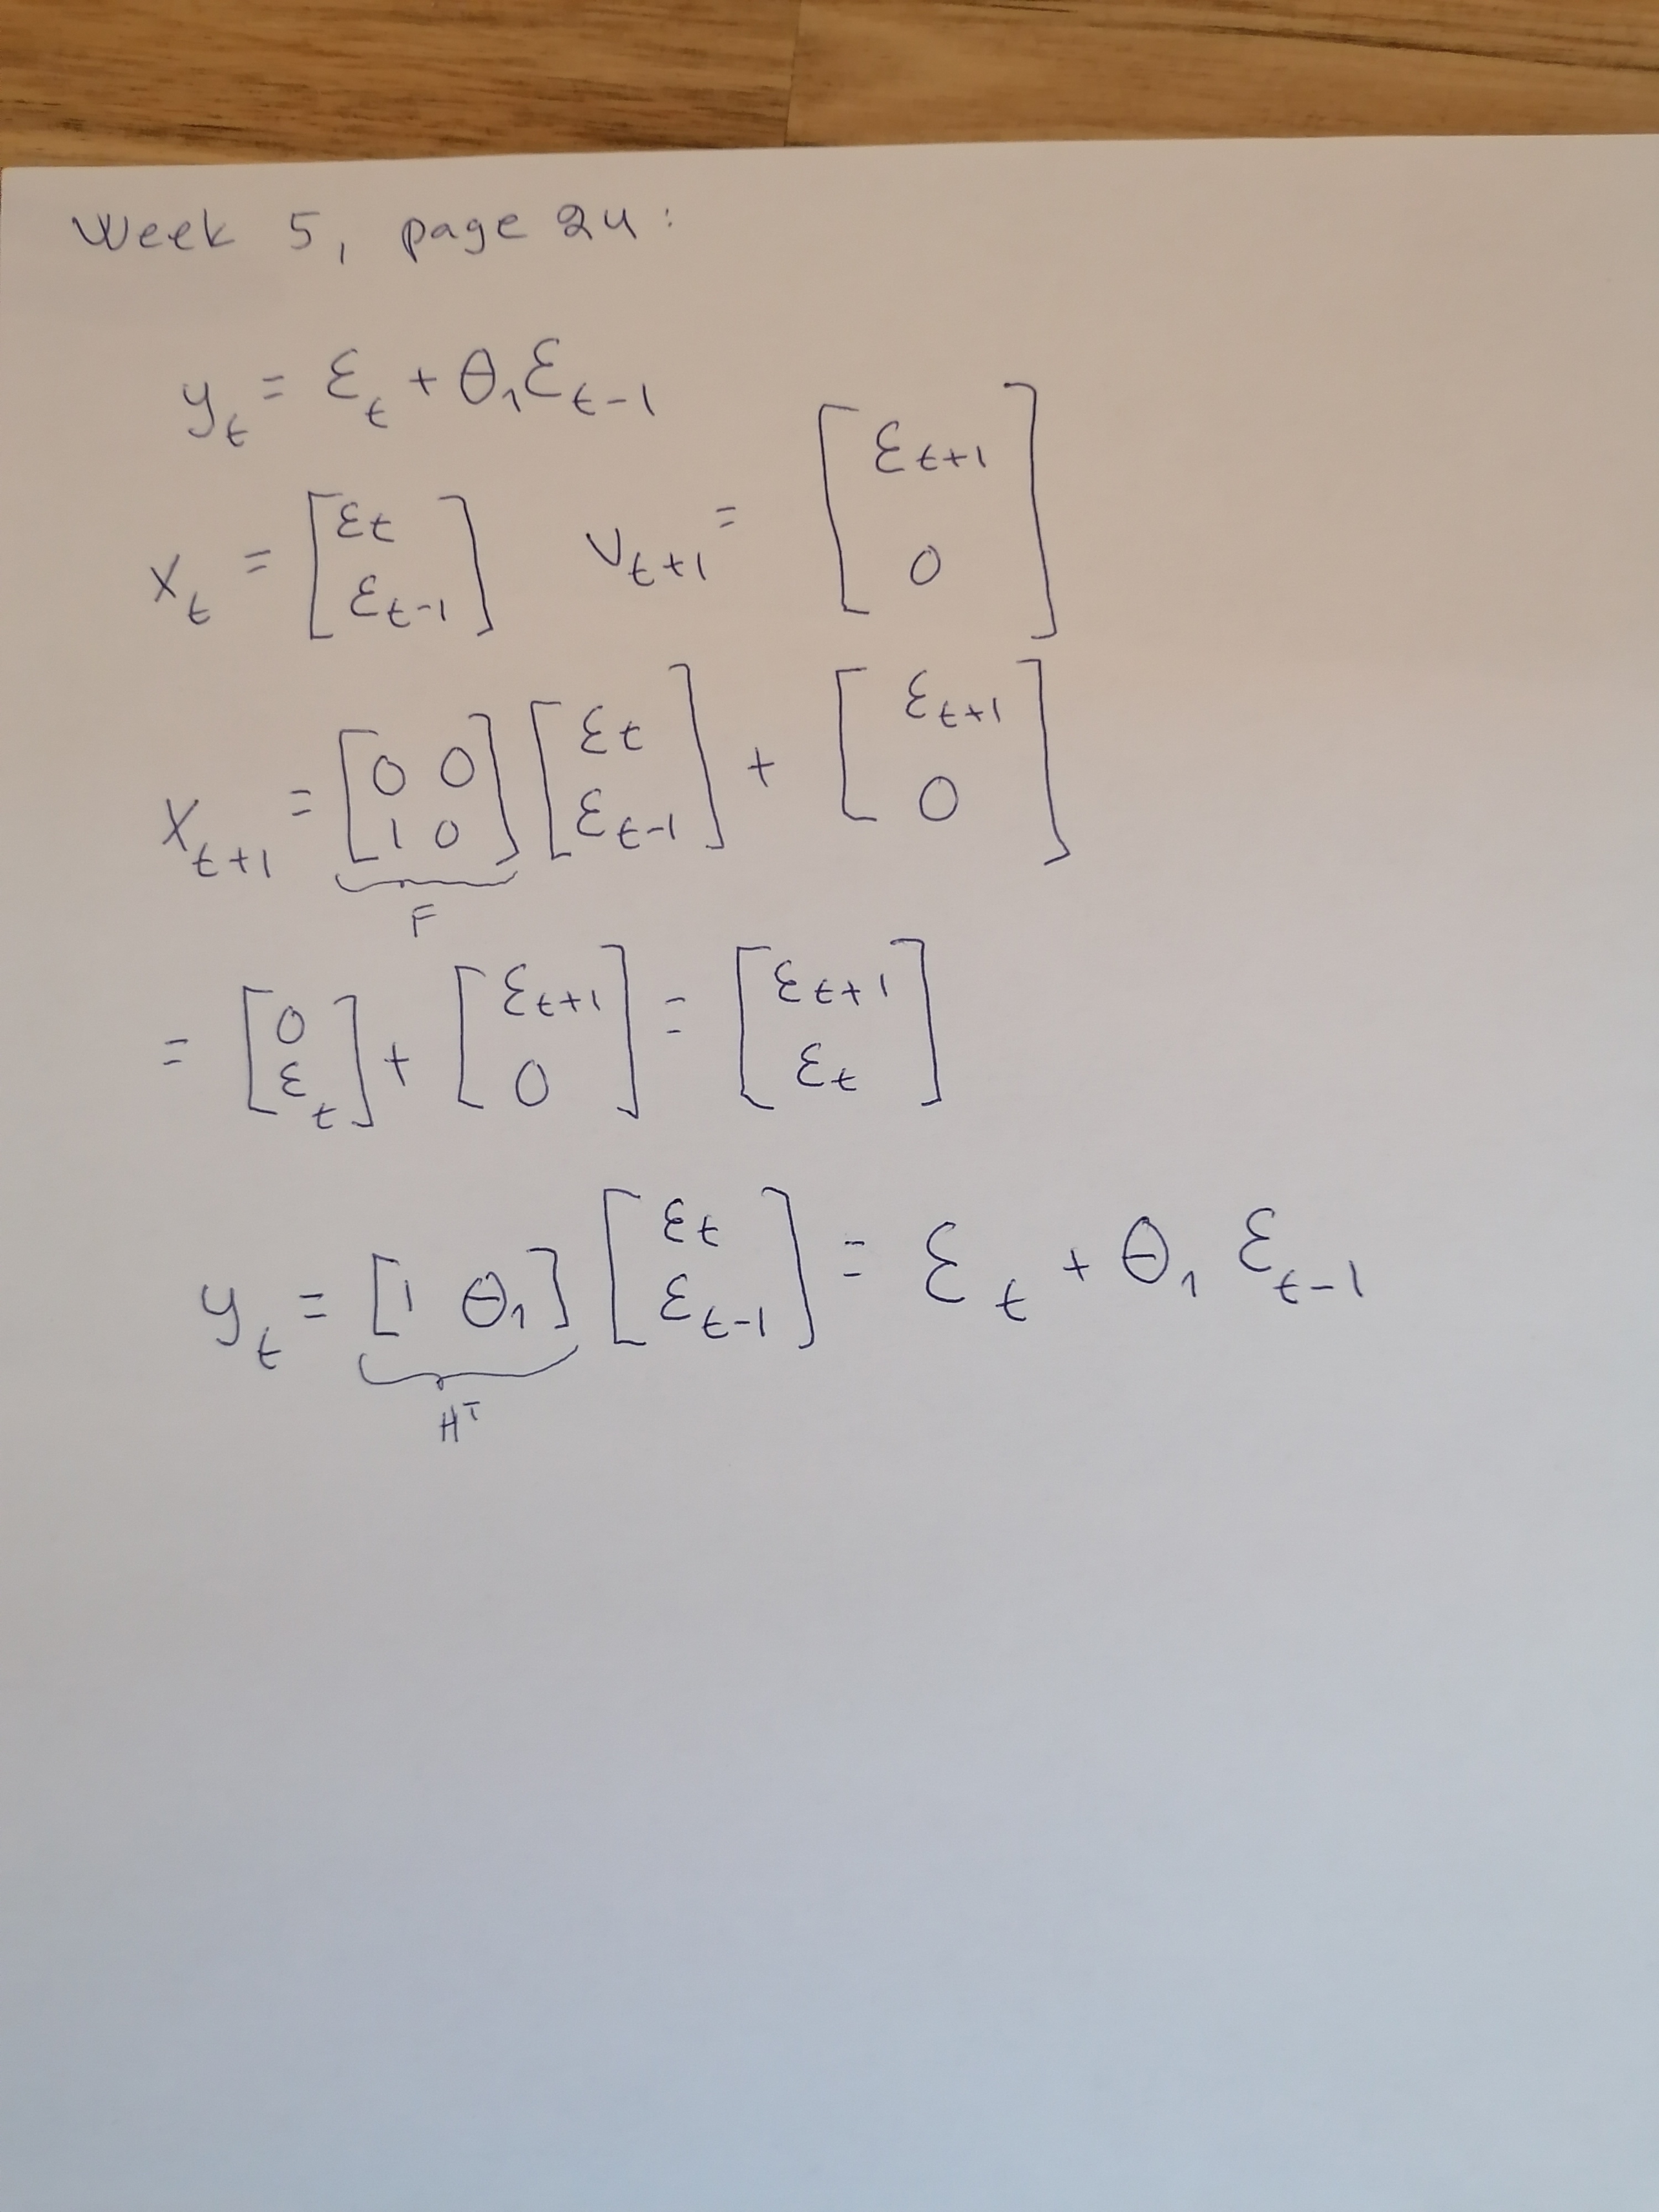 Week 5, page 24:
y_t = ε_t + θ_1 ε_{t-1}
x_t = [ε_t; ε_{t-1}]  v_{t+1} = [ε_{t+1}; 0]
x_{t+1} = [0 0; 1 0] [ε_t; ε_{t-1}] + [ε_{t+1}; 0]
F
= [0; ε_t] + [ε_{t+1}; 0] = [ε_{t+1}; ε_t]
y_t = [1 θ_1] [ε_t; ε_{t-1}] = ε_t + θ_1 ε_{t-1}
H^T